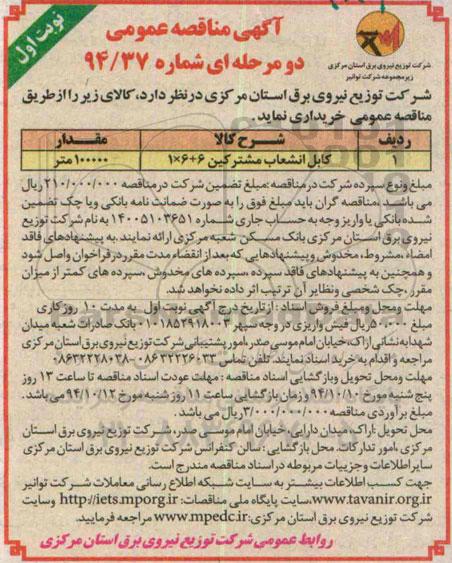 نوبت اول
آگهی مناقصه عمومی
دو مرحله ای شماره ۹۴/۳۷
شرکت توزیع نیروی برق استان مرکزی
زیرمجموعه شرکت توانیر
شرکت توزیع نیروی برق استان مرکزی در نظر دارد، کالای زیر را از طریق
مناقصه عمومی خریداری نماید.
ردیف شرح کالا مقدار
۱ کابل انشعاب مشترکین ۶+۶×۱ ۱۰۰۰۰۰ متر
مبلغ ونوع سپرده شرکت در مناقصه :مبلغ تضمین شرکت در مناقصه ۲۱۰/۰۰۰/۰۰۰ ریال
می باشد .مناقصه گران باید مبلغ فوق را به صورت ضمانت نامه بانکی ویا چک تضمین
شده بانکی یا واریز وجه به حساب جاری شماره ۱۴۰۰۵۱۰۳۶۵۱ به نام شرکت توزیع
نیروی برق استان مرکزی بانک مسکن شعبه مرکزی ارائه نمایند .به پیشنهادهای فاقد
امضاء ،مشروط ، مخدوش و پیشنهادهایی که بعد از انقضاء مدت مقرر در فراخوان واصل شود
و همچنین به پیشنهادهای فاقد سپرده ،سپرده های مخدوش ،سپرده های کمتر از میزان
مقرر ،چک شخصی ونظایر آن ترتیب اثر داده نخواهد شد.
مهلت ومحل ومبلغ فروش اسناد : از تاریخ درج آگهی نوبت اول به مدت ۱۰ روز کاری
مبلغ ۵۰.۰۰۰ ریال فیش واریزی در وجه سپهر ۰۱۰۱۸۵۳۹۱۸۰۰۳ بانک صادرات شعبه میدان
شهدا به نشانی اراک،خیابان امام موسی صدر ،امور پشتیبانی شرکت توزیع نیروی برق استان مرکزی
مراجعه و اقدام به خرید اسناد نمایند. تلفن تماس: ۰۸۶۳۲۲۲۶۰۳۳ -۰۸۶۳۲۲۲۸۰۳۸
مهلت ومحل تحویل وبازگشایی اسناد مناقصه : مهلت عودت اسناد مناقصه تا ساعت ۱۳ روز
پنج شنبه مورخ ۹۴/۱۰/۱۰ و زمان بازگشایی ساعت ۱۱ روز شنبه مورخ ۹۴/۱۰/۱۲ می باشد.
مبلغ برآوردی مناقصه ۳/۰۰۰/۰۰۰/۰۰۰ ریال می باشد.
محل تحویل :اراک، میدان دارایی، خیابان امام موسی صدر، شرکت توزیع نیروی برق استان
مرکزی ،امور تدارکات. محل بازگشایی : سالن کنفرانس شرکت توزیع نیروی برق استان مرکزی
سایر اطلاعات وجزییات مربوطه در اسناد مناقصه مندرج است.
جهت کسب اطلاعات بیشتر به سایت شبکه اطلاع رسانی معاملات شرکت توانیر
www.tavanir.org.ir،سایت پایگاه ملی مناقصات: http://iets.mporg.ir وسایت
شرکت توزیع نیروی برق استان مرکزی: www.mpedc.ir مراجعه فرمایید.
روابط عمومی شرکت توزیع نیروی برق استان مرکزی